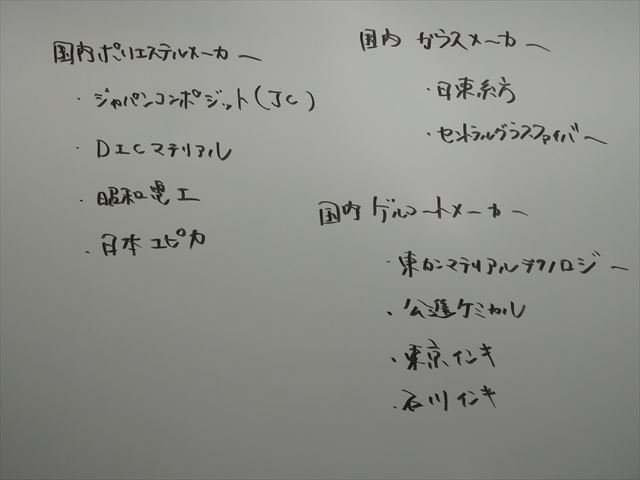 国内ポリエステルメーカー
・ジャパンコンポジット(JC)
・DICマテリアル
・昭和電工
・日本ユピカ
国内 ガラスメーカー
・日東紡
・セントラルグラスファイバー
国内 ゲルコートメーカー
・東カンマテリアルテクノロジー
・公進ケミカル
・東京インキ
・石川インキ